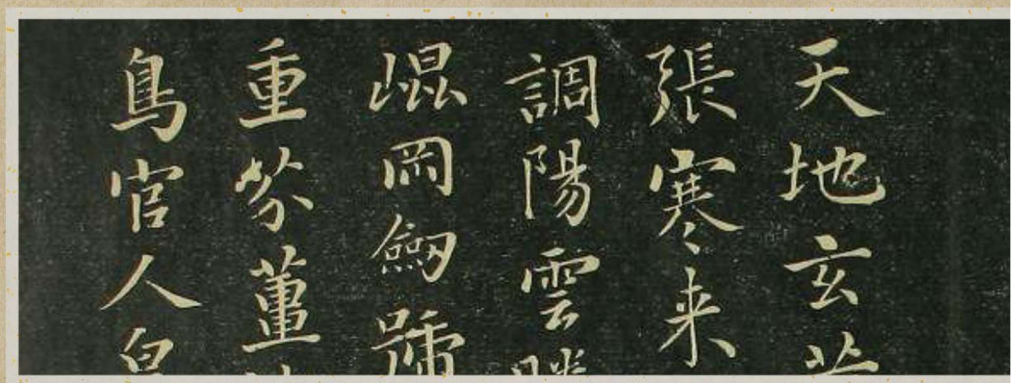 天地玄
張寒来
調陽雲
崐岡劒號
重芥薑
鳥官人